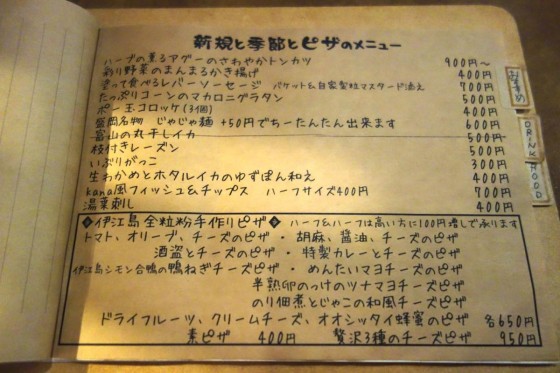 新規と季節とピザのメニュー
ハーブの薫るアグーのさわやかトンカツ 900円〜
彩り野菜のまんまるかき揚げ 400円
塗って食べるレバーソーセージ バケット&自家製粒マスタード添え 700円
たっぷりコーンのマカロニグラタン 500円
ポー玉コロッケ(3個) 400円
盛岡名物 じゃじゃ麺 +50円でちーたんたん出来ます 600円
富山の丸干しイカ 500円
枝付きレーズン 500円
いぶりがっこ 300円
生わかめとホタルイカのゆずぽん和え 400円
kana風フィッシュ&チップス ハーフサイズ400円 700円
湯葉刺し 400円
伊江島全粒粉手作りピザ ハーフ&ハーフは高い方に100円増しで承ります
トマト、オリーブ、チーズのピザ ・ 胡麻、醤油、チーズのピザ
酒盗とチーズのピザ ・ 特製カレーとチーズのピザ
伊江島シモン合鴨の鴨ねぎチーズピザ ・ めんたいマヨチーズピザ
半熟卵のっけのツナマヨチーズピザ
のり佃煮とじゃこの和風チーズピザ
ドライフルーツ、クリームチーズ、オオシッタイ蜂蜜のピザ 各650円
素ピザ 400円 贅沢3種のチーズピザ 950円
おすすめ
DRINK
FOOD